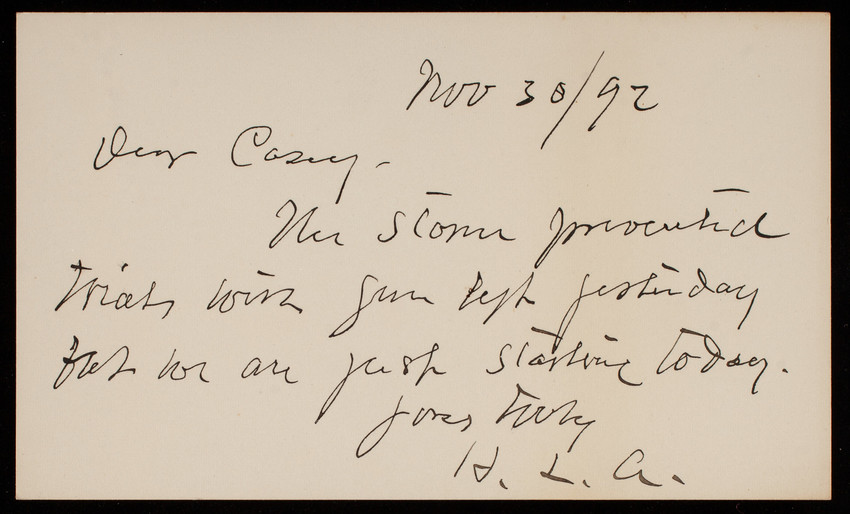 Nov 30/92
Dear Casey.
The storm prevented
trials with gun yesterday
but we are just starting today.
Yours truly
H. L. A.